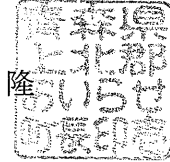 青森県
上北郡
おいらせ
町長印章
隆